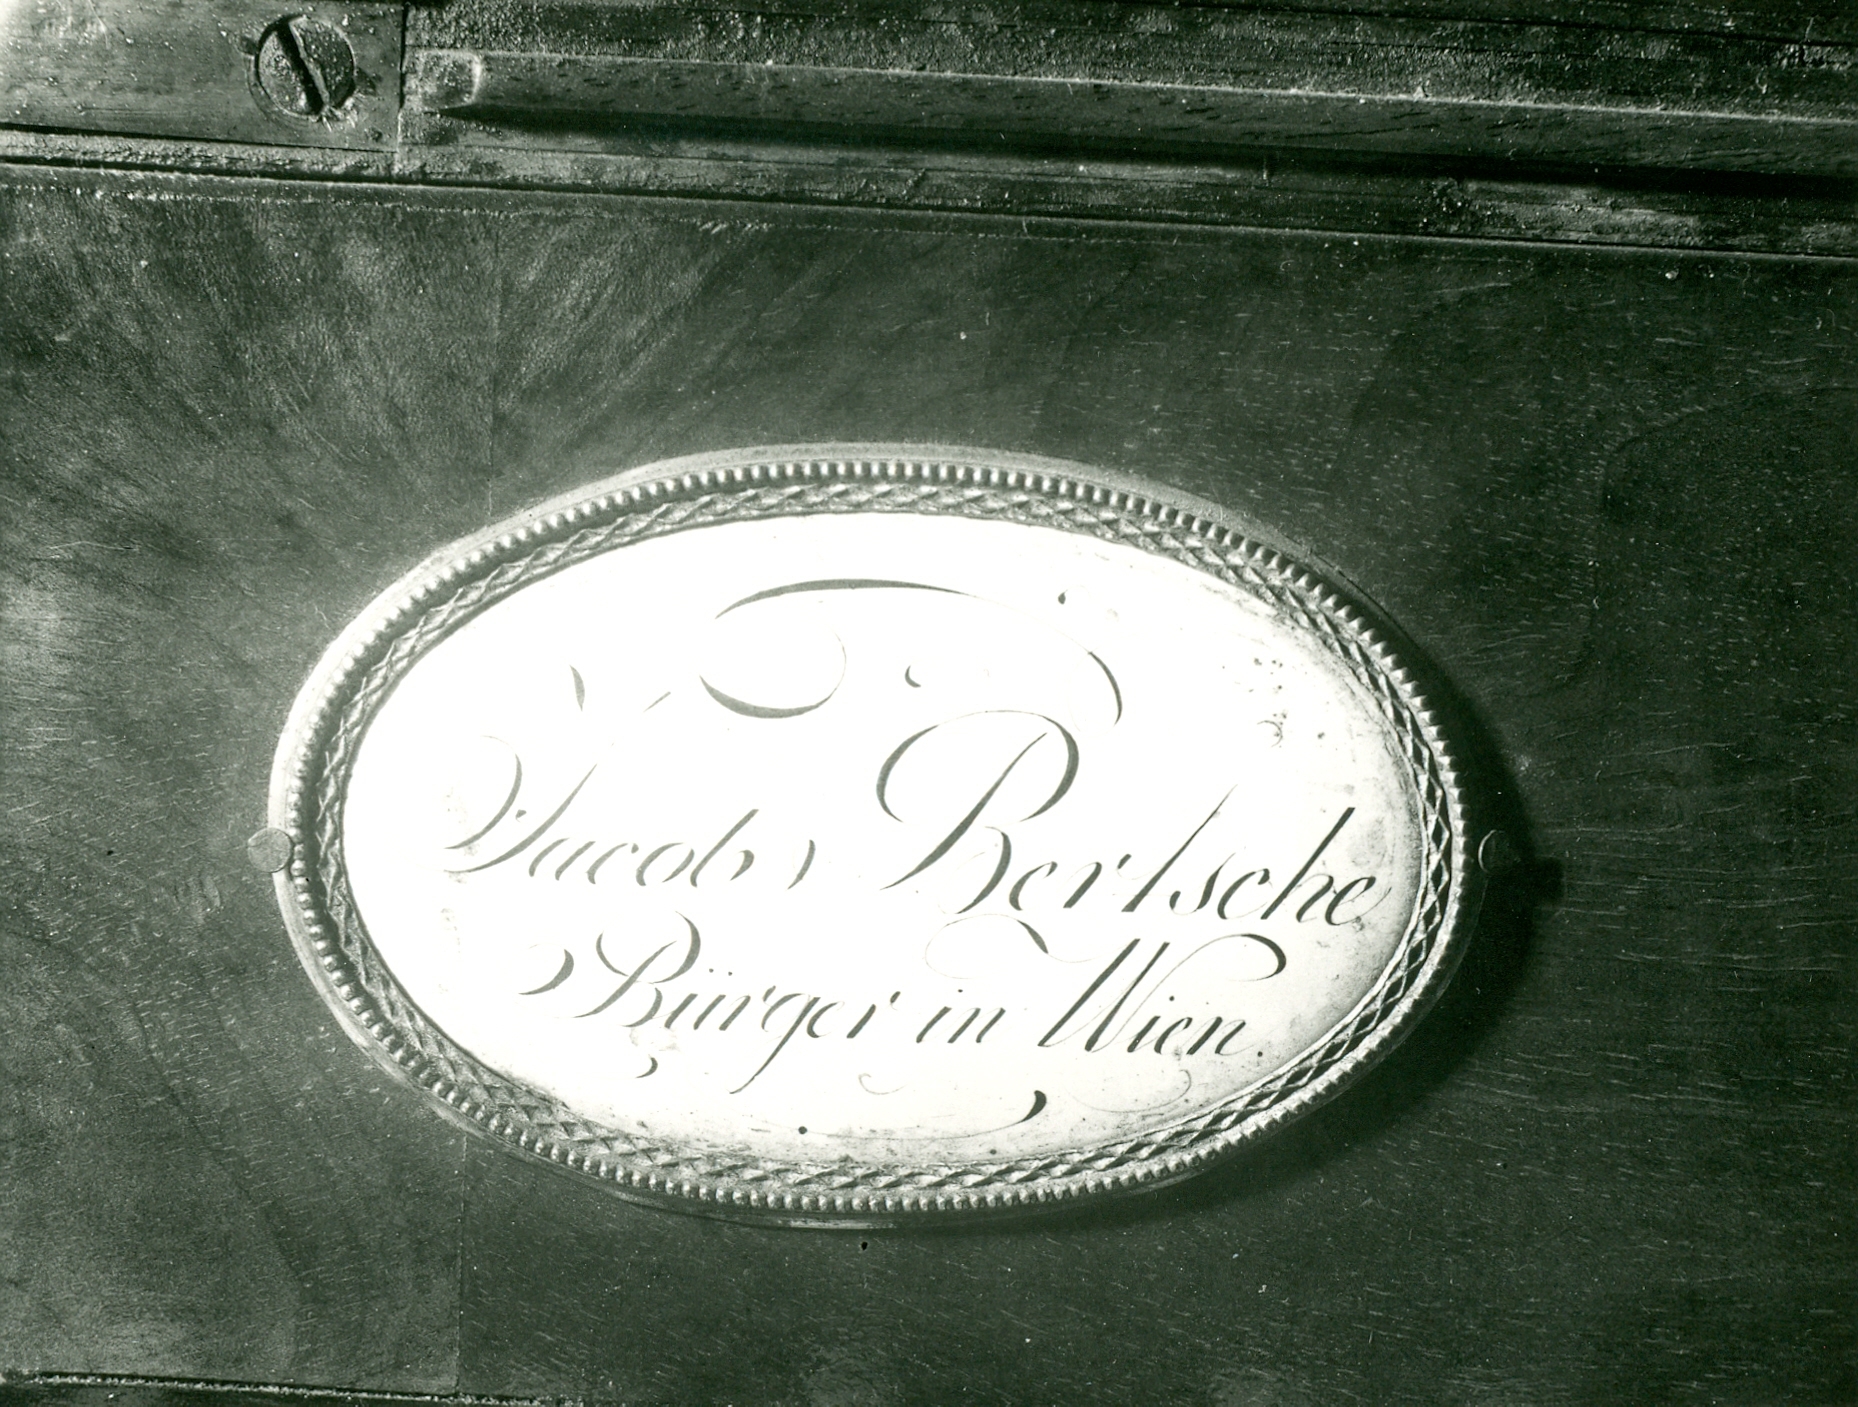 Jacob Bertsche
Bürger in Wien.